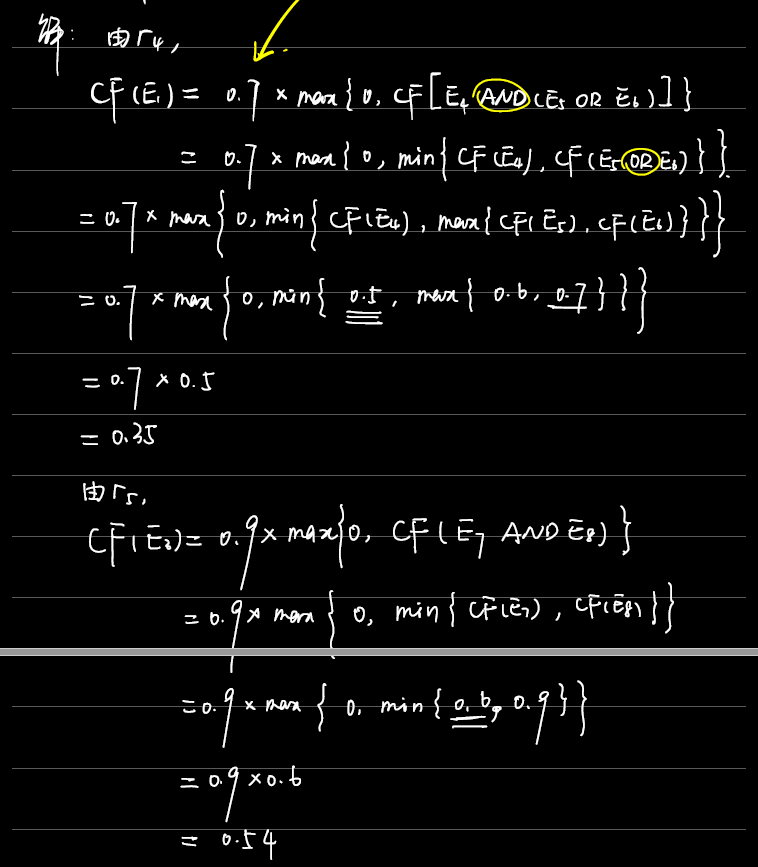 解: 由r₄,
CF(E₁) = 0.7 × max{0, CF[E₄ AND (E₅ OR E₆)]}
= 0.7 × max{0, min{CF(E₄), CF(E₅ OR E₆)}}.
= 0.7 × max{0, min{CF(E₄), max{CF(E₅), CF(E₆)}}}
= 0.7 × max{0, min{0.5, max{0.6, 0.7}}}
= 0.7 × 0.5
= 0.35
由r₅,
CF(E₃) = 0.9 × max{0, CF(E₇ AND E₈)}
= 0.9 × max{0, min{CF(E₇), CF(E₈)}}
= 0.9 × max{0, min{0.6, 0.9}}
= 0.9 × 0.6
= 0.54